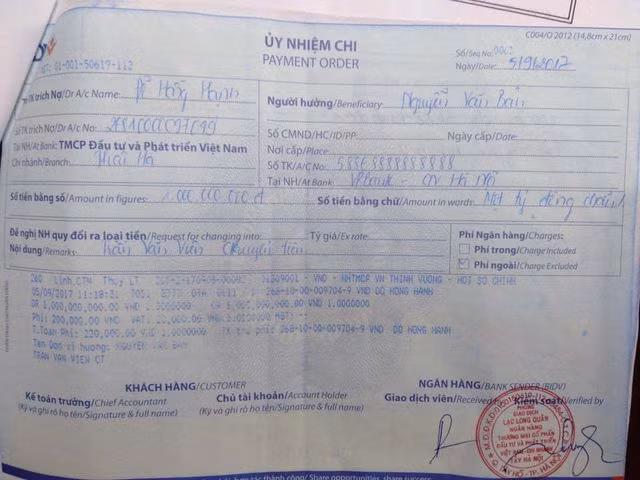 C004/O 2012 (14,8cm x 21cm)
ỦY NHIỆM CHI
PAYMENT ORDER
Số/Seq No:
Ngày/Date: 5/9/2017
Tên TK trích Nợ/Dr A/c Name: Đỗ Hồng Hạnh
Số TK trích Nợ/Dr A/c No:
Tại NH/At Bank: TMCP Đầu tư và Phát triển Việt Nam
Chi nhánh/Branch: Thái Hà
Người hưởng/Beneficiary: Nguyễn Văn
Số CMND/HC/ID/PP: Ngày cấp/Date:
Nơi cấp/Place:
Số TK/A/C No:
Tại NH/At Bank: VPbank - CN Hà Nội
Số tiền bằng số/Amount in figures: 1.000.000.000đ
Số tiền bằng chữ/Amount in words: Một tỷ đồng chẵn
Đề nghị NH quy đổi ra loại tiền/Request for changing into: Tỷ giá/Ex rate:
Nội dung/Remarks: Trần Văn Viên Chuyển tiền
Phí Ngân hàng/Charges:
Phí trong/Charge Included
Phí ngoài/Charge Excluded
- VND - NHTMCP VN THINH VUONG - HOI SO CHINH
05/09/2017 11:18:31 268-10-00-009704-9 VND DO HONG HANH
DR 1,000,000,000.00 VND 1.0000000
Phi: 200,000.00 VND VAT: 20,000.00 VND
T.Toan Phi: 220,000.00 VND 1.0000000 TK thu phi: 268-10-00-009704-9 VND DO HONG HANH
Ten Don vi huong: NGUYEN VAN
TRAN VAN VIEN CT
KHÁCH HÀNG/CUSTOMER
Kế toán trưởng/Chief Accountant
(Ký và ghi rõ họ tên/Signature & full name)
Chủ tài khoản/Account Holder
(Ký và ghi rõ họ tên/Signature & full name)
NGÂN HÀNG/BANK SENDER (BIDV)
Giao dịch viên/Received Kiểm soát/Verified by
PHÒNG
GIAO DỊCH
LẠC LONG QUÂN
NGÂN HÀNG
THƯƠNG MẠI CỔ PHẦN
ĐẦU TƯ VÀ PHÁT TRIỂN
VIỆT NAM-CHI NHÁNH
TÂY HÀ NỘI
Q. TÂY HỒ - TP. HÀ NỘI
Share opportunities, share success